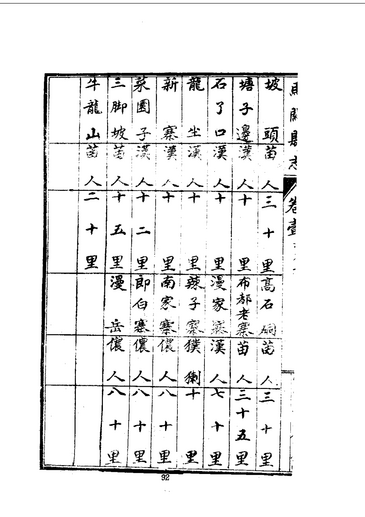 馬關縣志 卷壹
坡頭 苗人 三十里 高石硐 苗人 三十里
塘子邊 漢人 十里 布都老寨 苗人 三十五里
石了口 漢人 十里 漫家寨 漢人 七十里
龍坐 漢人 十里 辣子寨 獛猁 十里
新寨 漢人 十里 南家寨 儂人 八十里
菜園子 漢人 十二里 郎白寨 儂人 八十里
三脚坡 苗人 十五里 漫岳 儂人 八十里
牛龍山 苗人 二十里
92